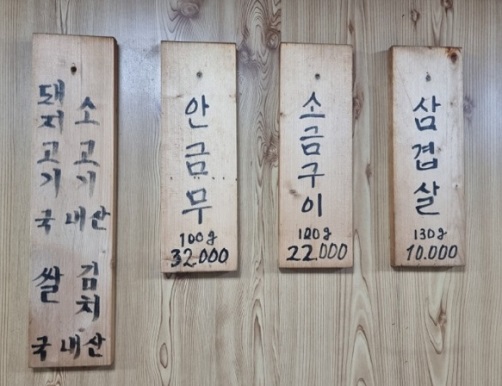 돼지고기
소고기
국내산
쌀
김치
국내산
안금무
100g
32.000
소금구이
120g
22.000
삼겹살
130g
10.000